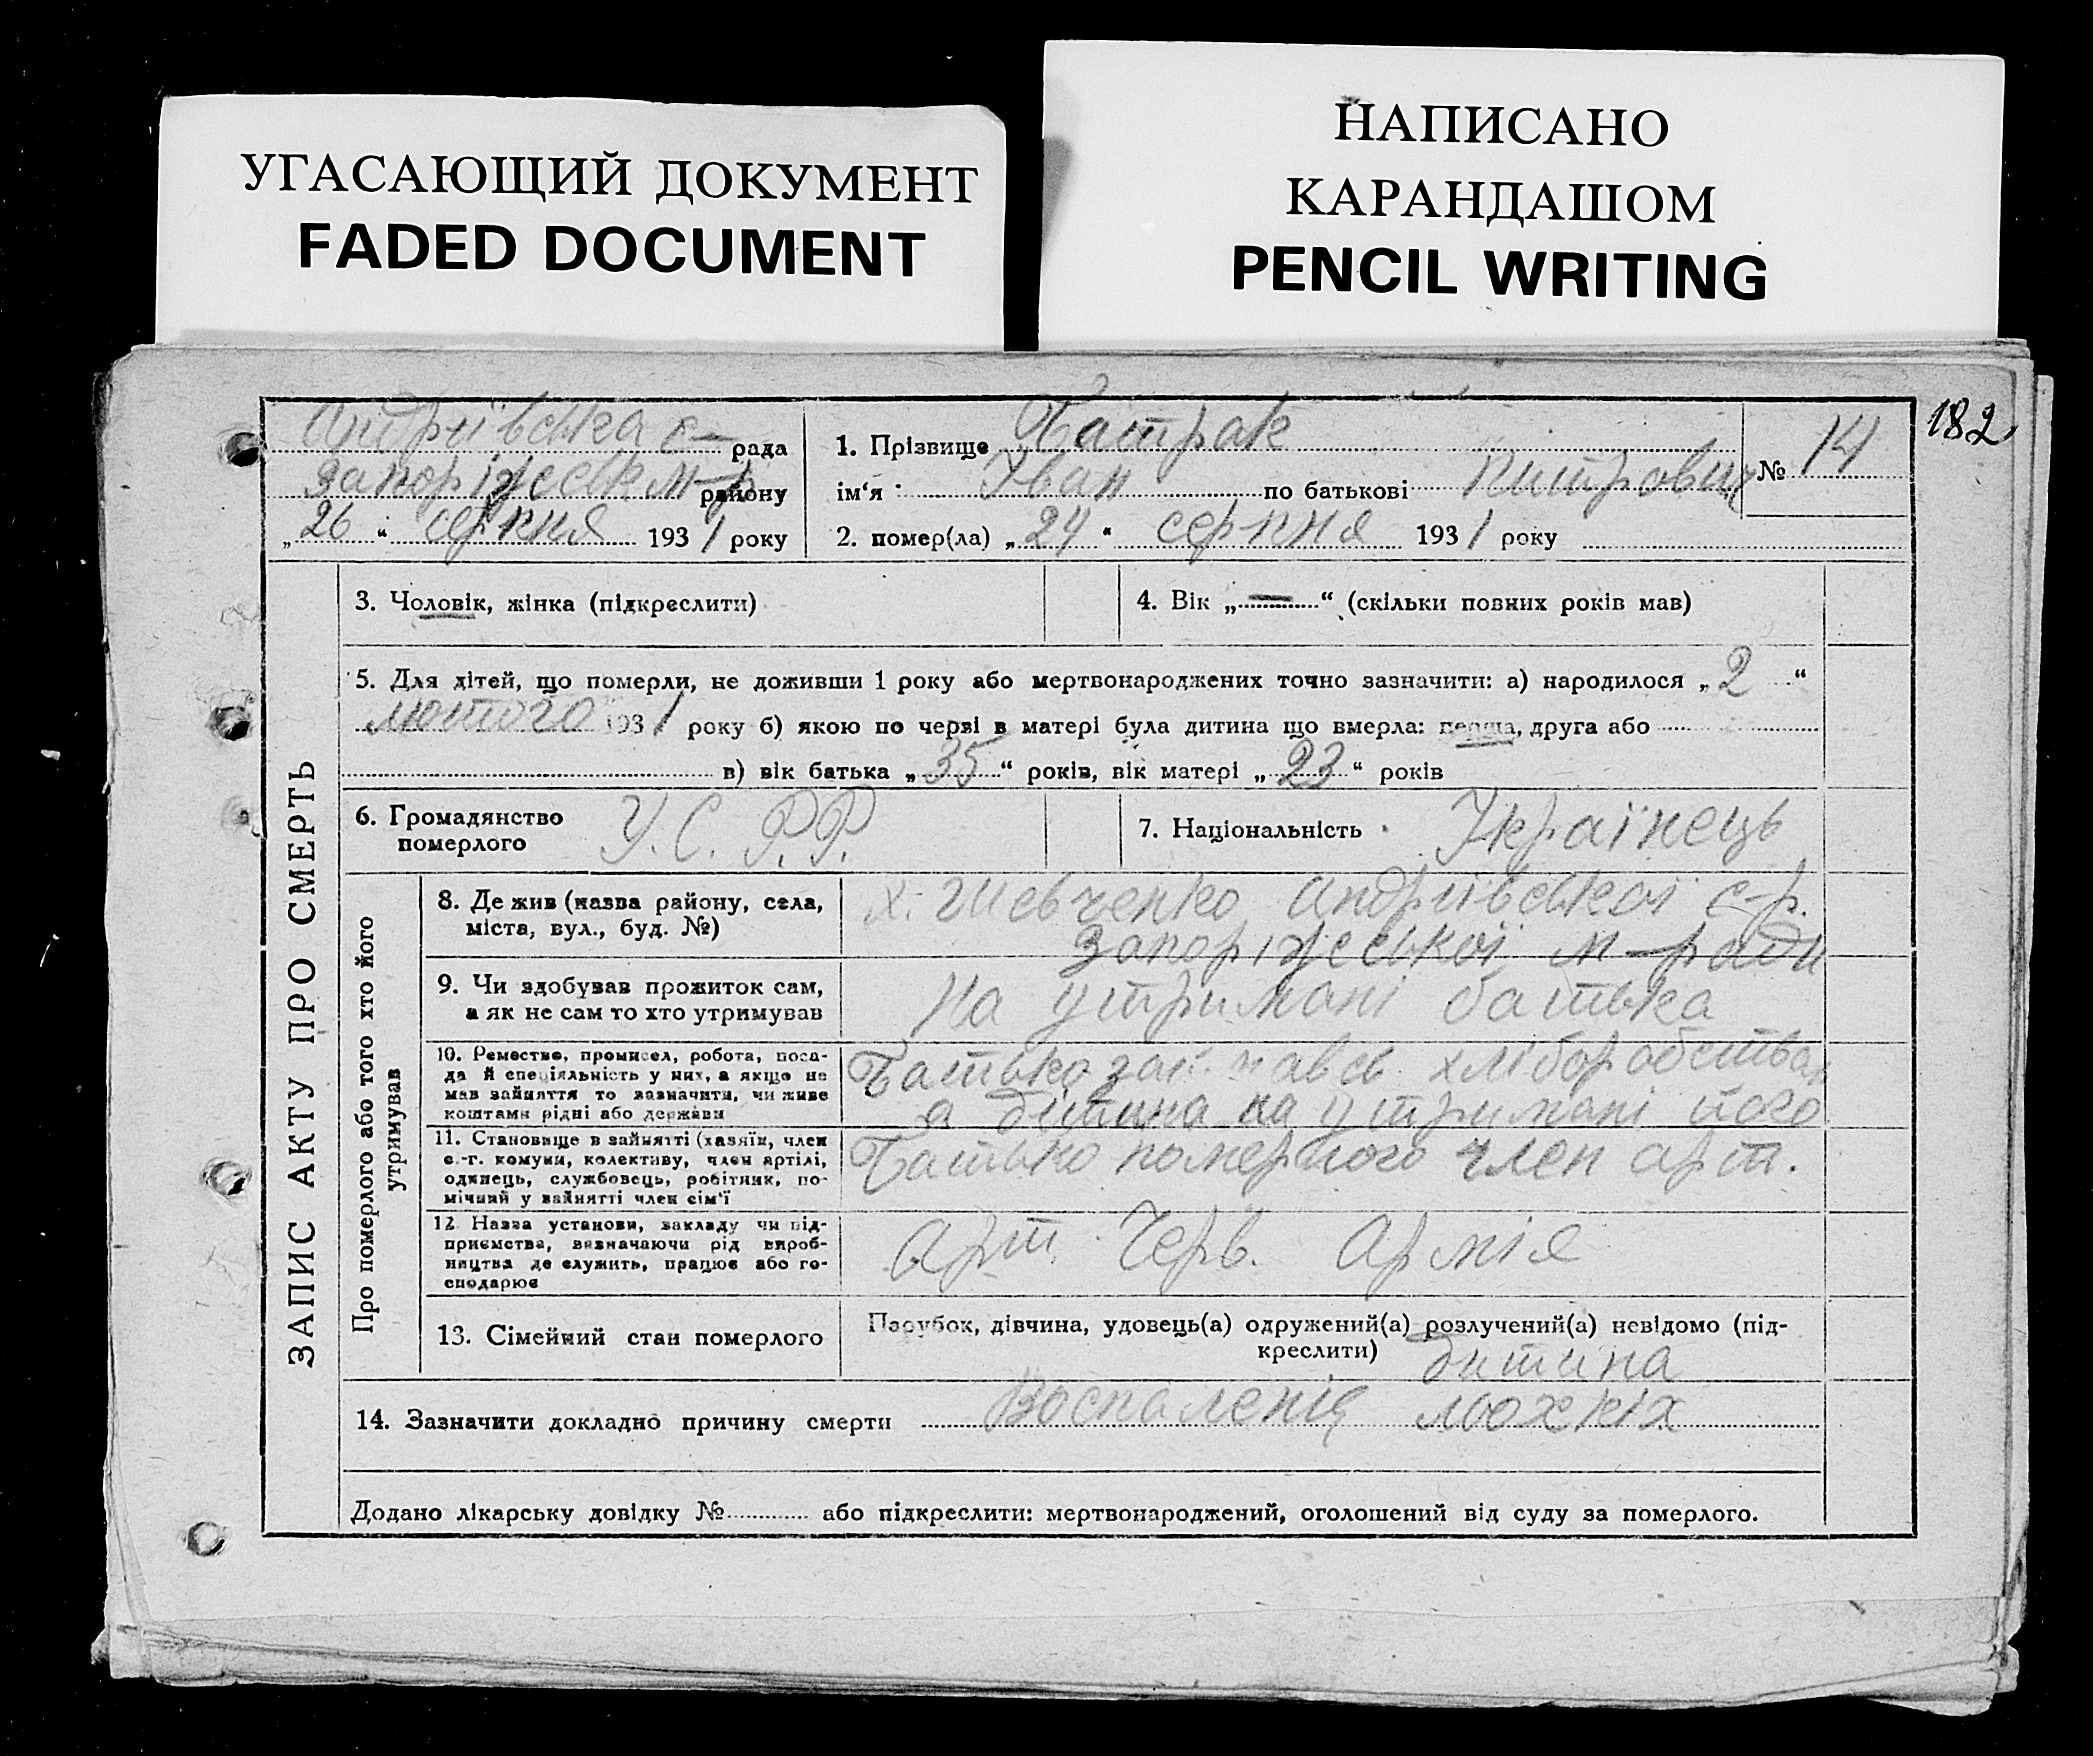 УГАСАЮЩИЙ ДОКУМЕНТ
FADED DOCUMENT
НАПИСАНО
КАРАНДАШОМ
PENCIL WRITING
182
Андріївська с– рада
Запоріжськ м–р району
„26“ серпня 1931 року
1. Прізвище Батрак
ім‘я Іван по батькові Питрович
№ 14
2. помер(ла) „24“ серпня 1931 року
ЗАПИС АКТУ ПРО СМЕРТЬ
3. Чоловік, жінка (підкреслити)
4. Вік „—“ (скільки повних років мав)
5. Для дітей, що померли, не доживши 1 року або мертвонароджених точно зазначити: а) народилося „2“
лютого 1931 року б) якою по черзі в матері була дитина що вмерла: перша, друга або
в) вік батька „35“ років, вік матері „23“ років
6. Громадянство
померлого
У. С. Р.Р.
7. Національність Українець
Про померлого або того хто його
утримував
8. Де жив (назва району, села,
міста, вул., буд. №)
х. Шевченко Андріївської с-р.
Запоріжської м–ради
9. Чи здобував прожиток сам,
а як не сам то хто утримував
На утримані батька
10. Ремество, промисел, робота, поса-
да й спеціяльність у них, а якщо не
мав зайняття то зазначити, чи живе
коштами рідні або держави
Батько займавсь хліборобством
а дитина на утримані його
11. Становище в зайнятті (хазяїн, член
с.-г. комуни, колективу, член артілі,
одинець, службовець, робітник, по-
мічний у зайнятті член сім‘ї
Батько померлого член арт.
12. Назва установи, закладу чи під-
приємства, зазначаючи рід вироб-
ництва де служить, працює або го-
сподарює
Арт. Черв. Армія
13. Сімейний стан померлого
Парубок, дівчина, удовець(а) одружений(а) розлучений(а) невідомо (під-
креслити) дитина
14. Зазначити докладно причину смерти Воспаленія льохкіх
Додано лікарську довідку № або підкреслити: мертвонароджений, оголошений від суду за померлого.